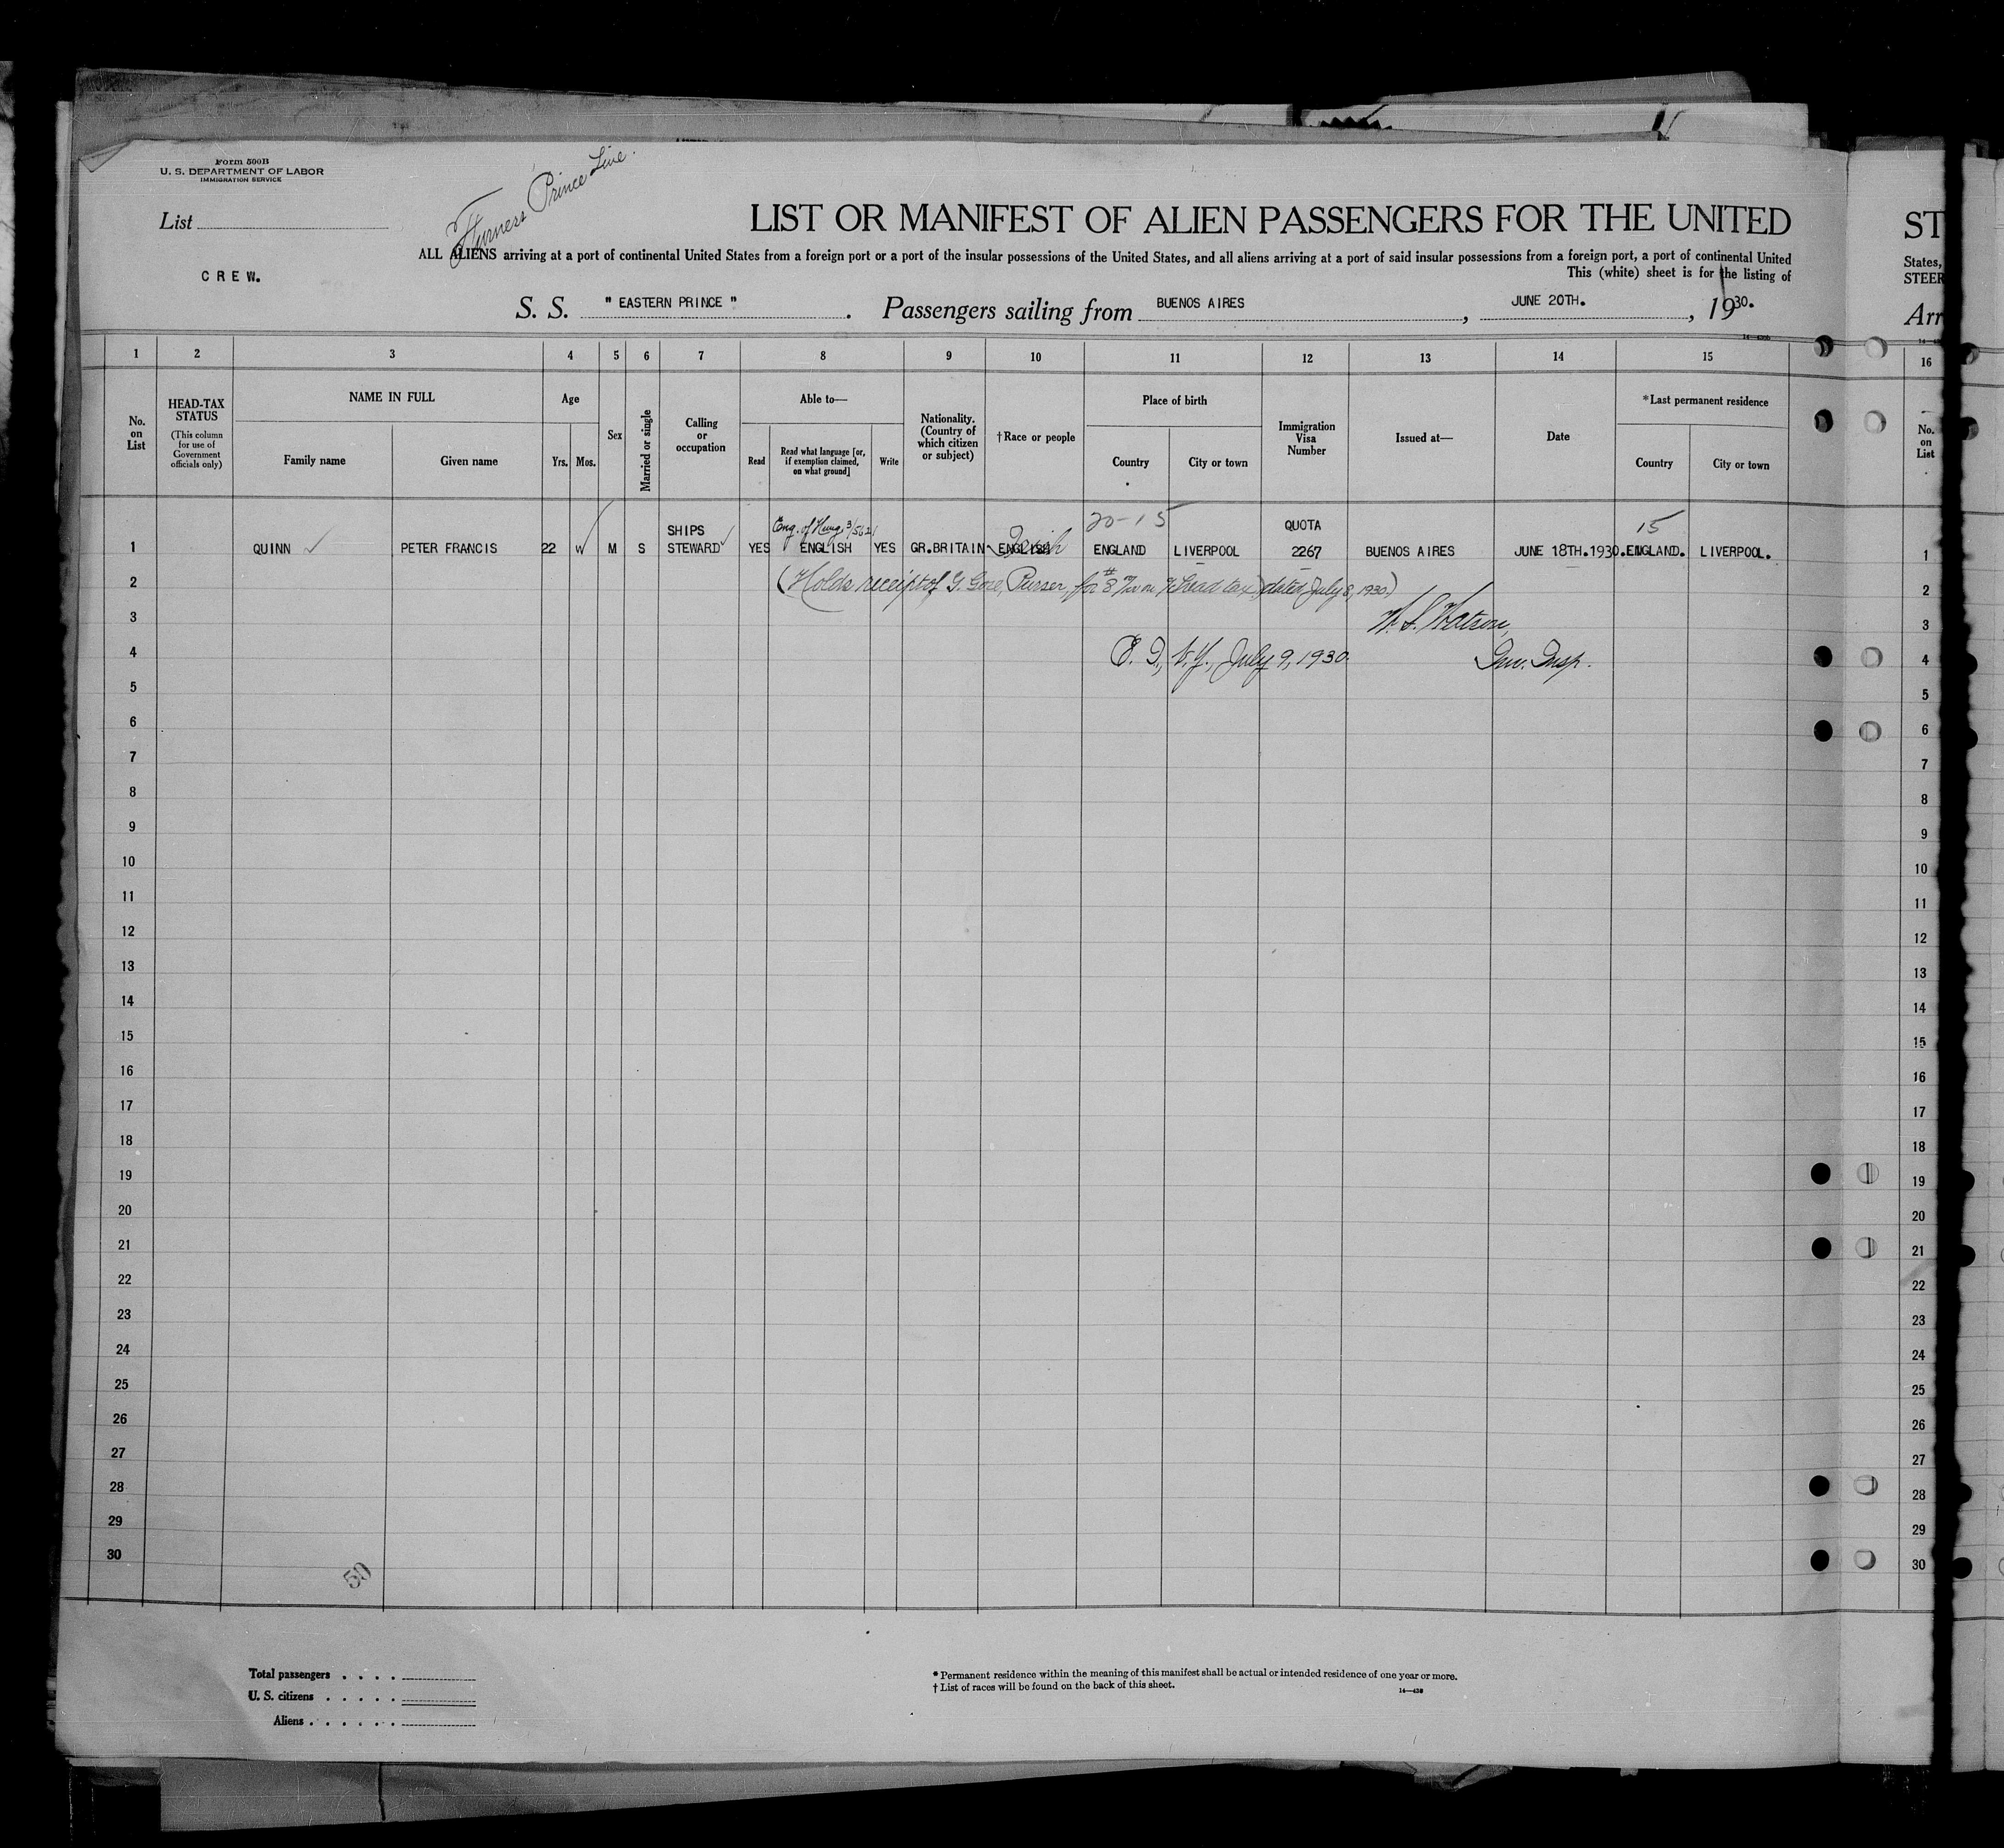 Form 500B
U. S. DEPARTMENT OF LABOR
IMMIGRATION SERVICE
Furness Prince Line.
List
CREW.
LIST OR MANIFEST OF ALIEN PASSENGERS FOR THE UNITED
ST
ALL ALIENS arriving at a port of continental United States from a foreign port or a port of the insular possessions of the United States, and all aliens arriving at a port of said insular possessions from a foreign port, a port of continental United
States,
This (white) sheet is for the listing of
STEER
S. S. " EASTERN PRINCE " . Passengers sailing from BUENOS AIRES , JUNE 20TH. , 1930.
Arr
1 2 3 4 5 6 7 8 9 10 11 12 13 14 15 16
No. on List
HEAD-TAX STATUS
(This column for use of Government officials only)
NAME IN FULL
Family name
Given name
Age
Yrs. Mos.
Sex
Married or single
Calling or occupation
Able to—
Read
Read what language [or, if exemption claimed, on what ground]
Write
Nationality. (Country of which citizen or subject)
†Race or people
Place of birth
Country
City or town
Immigration Visa Number
Issued at—
Date
*Last permanent residence
Country
City or town
No. on List
20-15
15
1 QUINN PETER FRANCIS 22 M S SHIPS STEWARD YES ENGLISH YES GR.BRITAIN ENGLISH Irish ENGLAND LIVERPOOL QUOTA 2267 BUENOS AIRES JUNE 18TH.1930. ENGLAND. LIVERPOOL. 1
2 (Holds receipt of G. Gore, Purser, for #8 head tax, dated July 8, 1930) 2
3 W. S. Watson, 3
4 E. I., N.Y., July 9, 1930. Imm. Insp. 4
5 5
6 6
7 7
8 8
9 9
10 10
11 11
12 12
13 13
14 14
15 15
16 16
17 17
18 18
19 19
20 20
21 21
22 22
23 23
24 24
25 25
26 26
27 27
28 28
29 29
30 30
50
Total passengers . . . .
U. S. citizens . . . . .
Aliens . . . . . .
* Permanent residence within the meaning of this manifest shall be actual or intended residence of one year or more.
† List of races will be found on the back of this sheet.
14—438